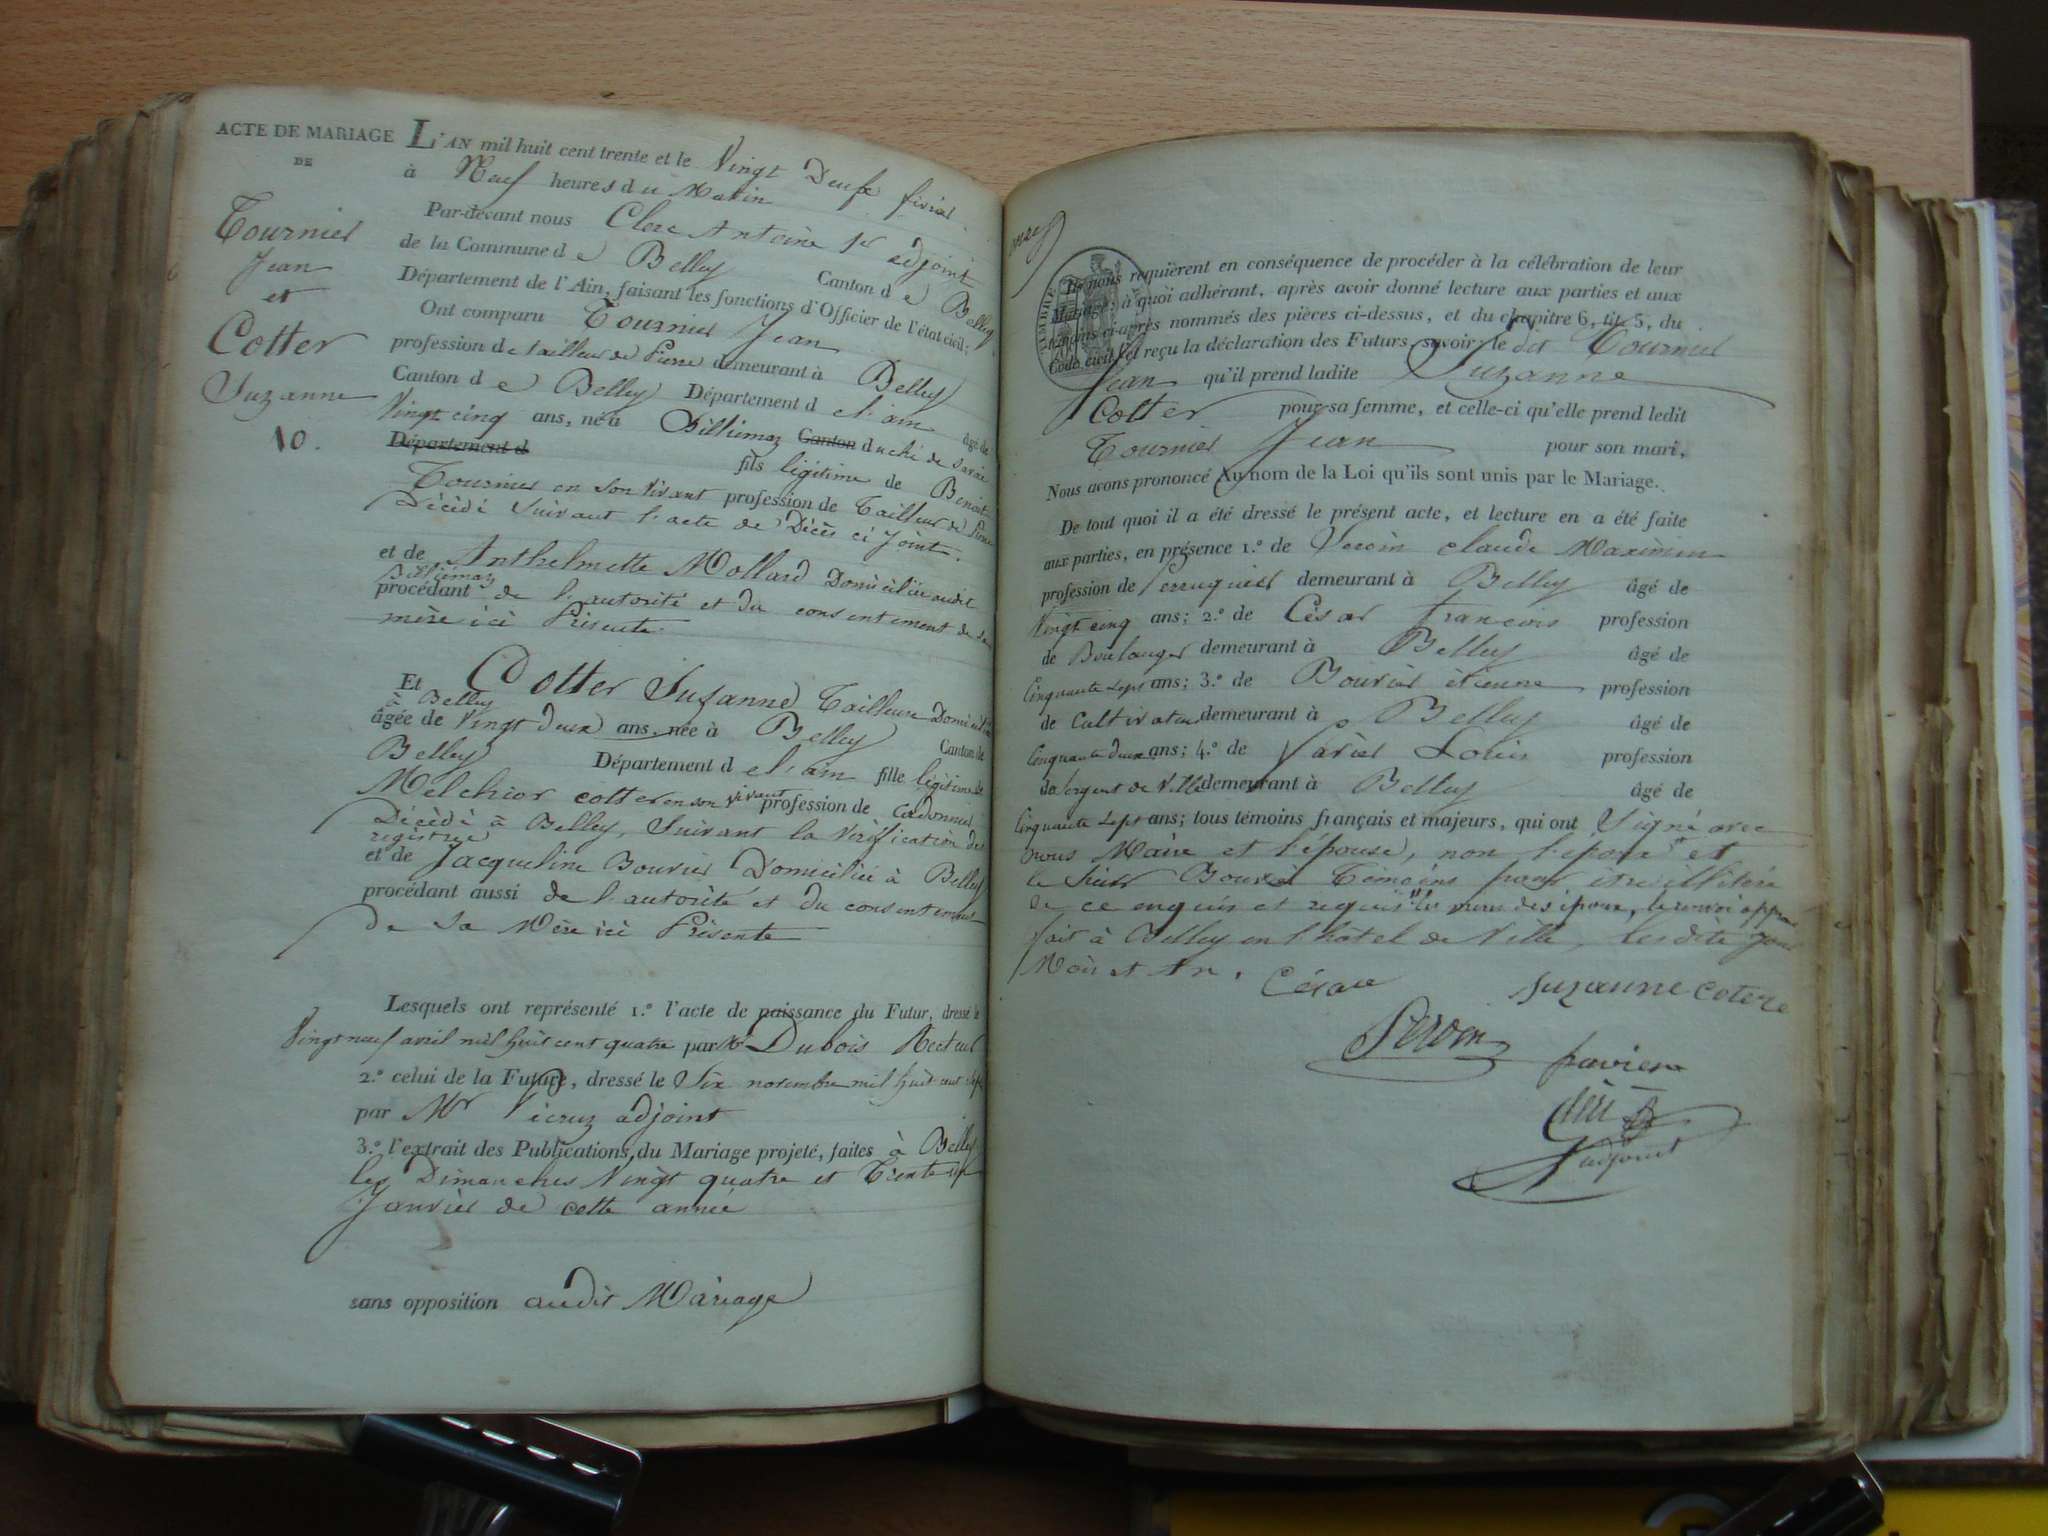 ACTE DE MARIAGE
DE
Tournier
Jean
et
Cotter
Suzanne
10.
L'AN mil huit cent trente et le Vingt Deux
à Neuf heures du Matin
Par-devant nous Clerc Antoine 1er adjoint
de la Commune de Belley Canton de Belley
Département de l'Ain, faisant les fonctions d'Officier de l'état civil;
Ont comparu Tournier Jean
profession de tailleur de Pierre demeurant à Belley
Canton de Belley Département de l'ain âgé de
Vingt cinq ans, né à Billiemaz Canton duché de Savoie
Département d
fils légitime de Benoit
Tournier en son vivant profession de Tailleur de Pierre
Décédé Suivant l'acte de Décès ci joint.
et de Anthelmette Mollard Domiciliée audit
Billiemaz
procédant de l'autorité et du consentement de sa
mère ici Présente
Et Cotter Suzanne Tailleuse Domiciliée
à Belley
âgée de Vingt deux ans, née à Belley Canton de
Belley Département de l'ain fille légitime de
Melchior cotter en son vivant profession de Cordonnier
Décédé à Belley, Suivant la Vérification des
registres
et de Jacqueline Bouvier Domiciliée à Belley
procédant aussi de l'autorité et du consentement
de Sa Mère ici Présente
Lesquels ont représenté 1.º l'acte de naissance du Futur, dressé le
Vingt neuf avril mil huit cent quatre par Mr Dubois Recteur
2.º celui de la Future, dressé le Six novembre mil huit cent sept
par Mr adjoint
3.º l'extrait des Publications du Mariage projeté, faites à Belley
les Dimanches Vingt quatre et Trente un
Janvier de cette année
sans opposition audit Mariage
TIMBRE
Ils nous requièrent en conséquence de procéder à la célébration de leur
Mariage; à quoi adhérant, après avoir donné lecture aux parties et aux
témoins ci-après nommés des pièces ci-dessus, et du chapitre 6, tit. 5, du
Code civil, et reçu la déclaration des Futurs, savoir: le dit Tournier
Jean qu'il prend ladite Suzanne
Cotter pour sa femme, et celle-ci qu'elle prend ledit
Tournier Jean pour son mari,
Nous avons prononcé Au nom de la Loi qu'ils sont unis par le Mariage.
De tout quoi il a été dressé le présent acte, et lecture en a été faite
aux parties, en présence 1.º de claude Maximin
profession de Perruquier demeurant à Belley âgé de
Vingt cinq ans; 2.º de César françois profession
de Boulanger demeurant à Belley âgé de
Cinquante Sept ans; 3.º de Bouvier étienne profession
de Cultivateur demeurant à Belley âgé de
Cinquante deux ans; 4.º de Louis profession
de Sergent de Ville demeurant à Belley âgé de
Cinquante Sept ans; tous témoins français et majeurs, qui ont Signé avec
nous Maire et l'épouse, non l'époux et
le Sieur Bouvier Témoins pour être illitéré
de ce enquis et requis
fait à Belley en l'hôtel de Ville, les dits jour
Mois et An.
Césare
Suzanne cotere
adjoint